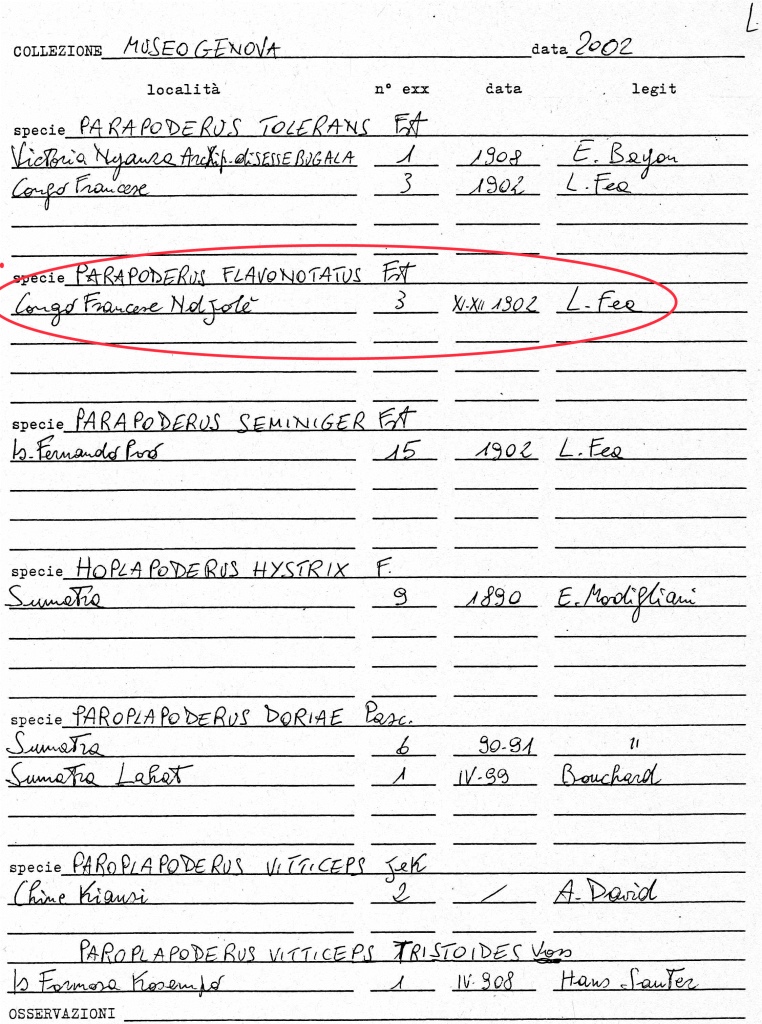 L.
COLLEZIONE MUSEO GENOVA data 2002
località n° exx data legit
specie PARAPODERUS TOLERANS
Victoria Nyanza di SESSE BUGALA 1 1908 E. Bayon
Congo Francese 3 1902 L. Fea
specie PARAPODERUS FLAVONOTATUS
Congo Francese Ndjolé 3 XI-XII 1902 L. Fea
specie PARAPODERUS SEMINIGER
Is. Fernando Poó 15 1902 L. Fea
specie HOPLAPODERUS HYSTRIX F.
Sumatra 9 1890 E. Modigliani
specie PAROPLAPODERUS DORIAE Pasc.
Sumatra 6 90-91 "
Sumatra Lahat 1 IV-99 Bouchard
specie PAROPLAPODERUS VITTICEPS Jek
Chine Kiansi 2 / A. David
PAROPLAPODERUS VITTICEPS TRISTOIDES Voss
Is Formosa Kosempó 1 IV-908 Hans Sauter
OSSERVAZIONI